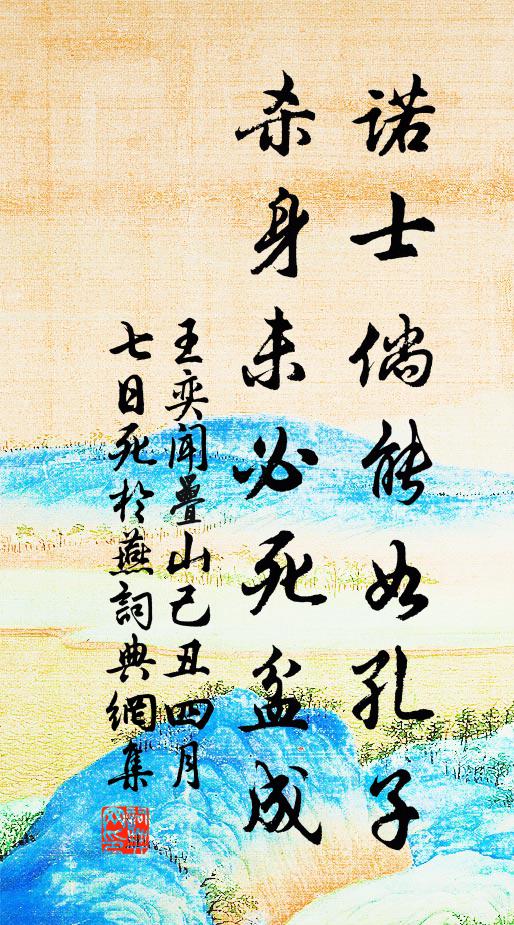 诺士倘能如孔子
杀身未必死盆成
王奕闻疊山己丑四月
七日死於燕詞典網集